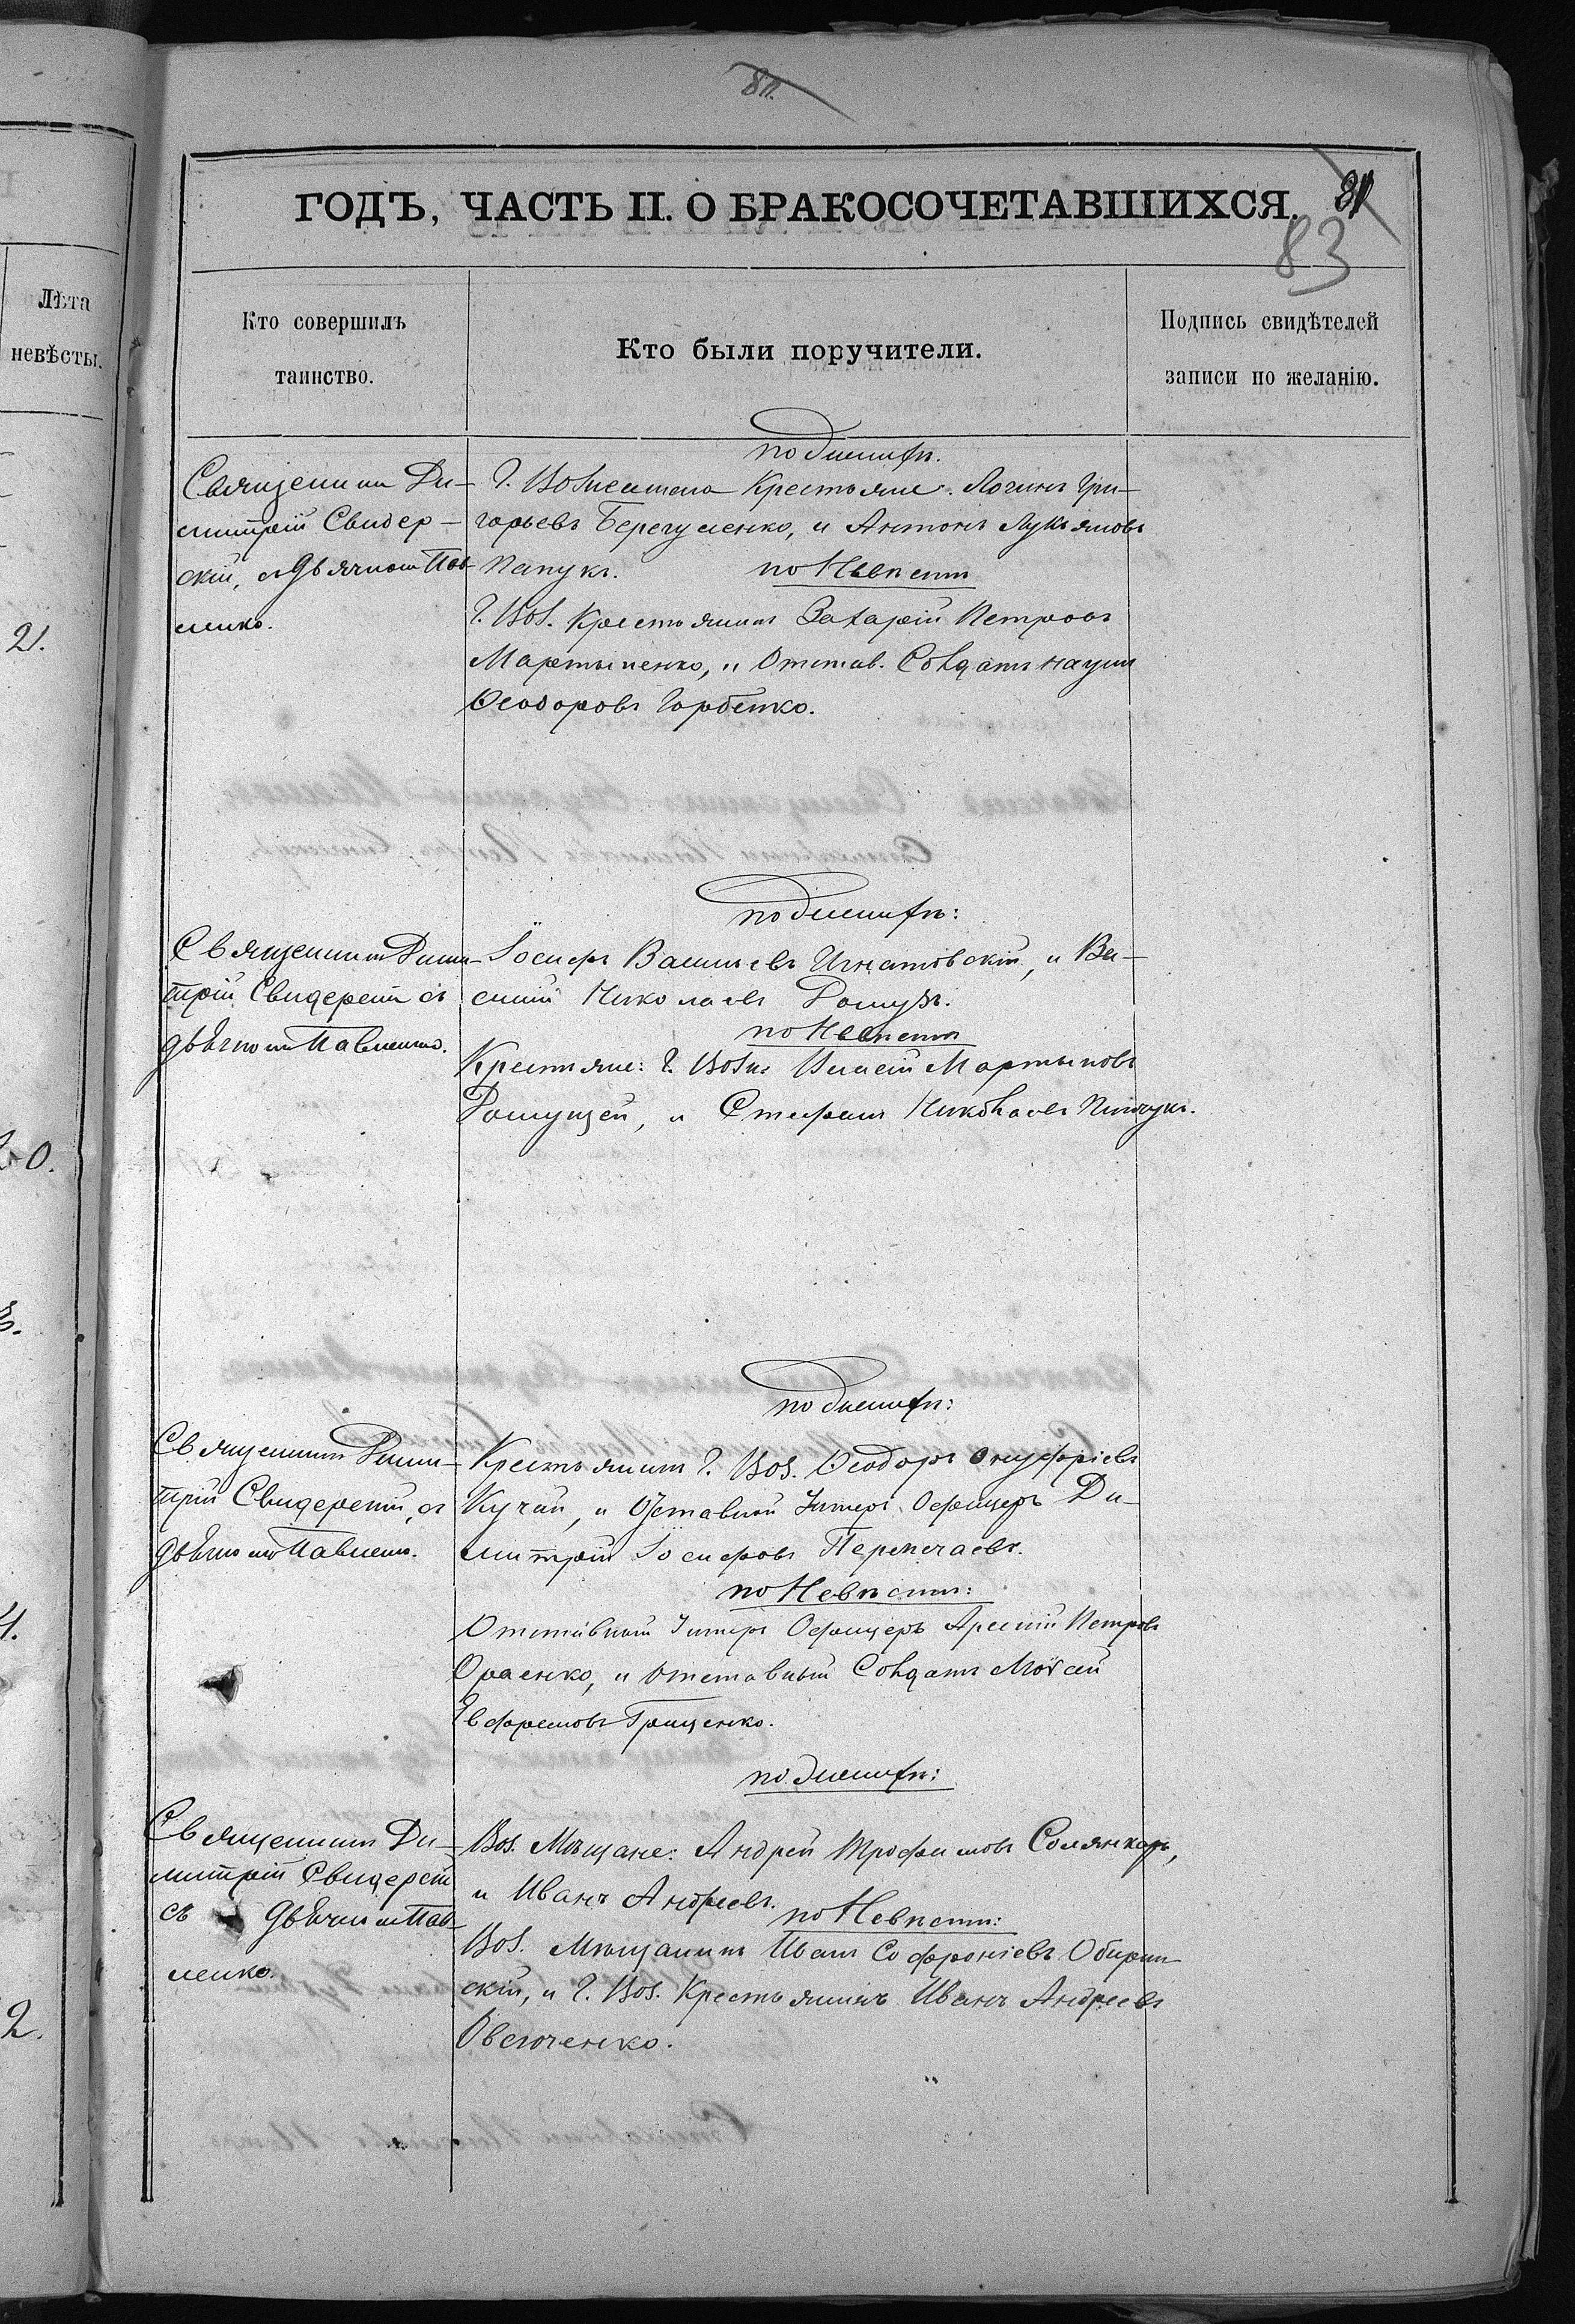 80.
ГОДЪ, ЧАСТЬ II. О БРАКОСОЧЕТАВШИХСЯ.
81
83
Лѣта
невѣсты.
Кто совершилъ
таинство.
Кто были поручители.
Подпись свидѣтелей
записи по желанію.
21.
Священникъ Ди-
митрій Свидер-
скій, съ дьячкомъ Пав-
ленко.
по женихѣ.
Г. Вознесенска Крестьяне: Логинъ Гри-
горьевъ Берегуленко, и Антонъ Лукьяновъ
Папукъ.
по Невѣстѣ
Г. Воз. Крестьянинъ Захарій Петровъ
Мартыненко, и Отстав. Солдатъ Наумъ
Ѳеодоровъ Горбенко.
20.
Священникъ Дими-
трій Свидерскій съ
дьячкомъ Павленко.
по женихѣ:
Іосифъ Васильевъ Игнатовскій, и Ва-
силій Николаевъ
по Невѣстѣ
Крестьяне: Г. Возн. Мартыновъ
и Стефанъ Николаевъ
3.
Священникъ Дими-
трій Свидерскій, съ
дьячкомъ Павленко.
по женихѣ:
Крестьянинъ Г. Воз. Ѳеодоръ Онуфріевъ
Кучай, и Отставной Унтеръ Офицеръ Ди-
митрій Іосифовъ Перепечаевъ.
по Невѣстѣ:
Отставный Унтеръ Офицеръ Арсеній Петровъ
и Отставный Солдатъ Моѵсей
Евфремовъ Грищенко.
4.
Священникъ Ди-
митрій Свидерскій
съ дьячкомъ Пав-
ленко.
по женихѣ:
Воз. Мѣщане: Андрей Трофимовъ Солянкарь,
и Иванъ Андреевъ.
по Невѣстѣ:
Воз. Мѣщанинъ Иванъ Софроніевъ
скій, и Г. Воз. Крестьянинъ Иванъ Андреевъ
Овсюченко.
2.